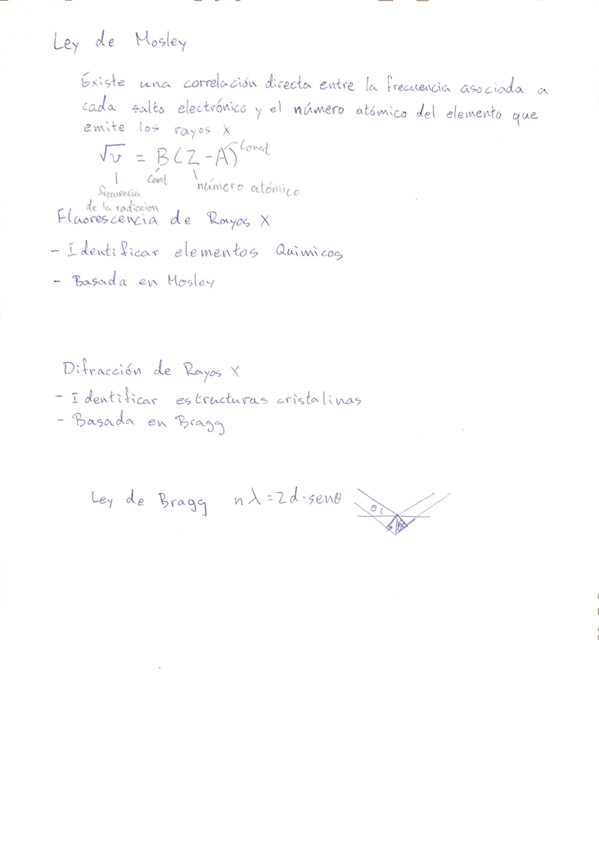 Ley de Mosley
Existe una correlación directa entre la frecuencia asociada a
cada salto electrónico y el número atómico del elemento que
emite los rayos X
√ν = B(Z-A) const
const
número atómico
frecuencia
de la radiacion
Fluorescencia de Rayos X
- Identificar elementos Quimicos
- Basada en Mosley
Difracción de Rayos X
- Identificar estructuras cristalinas
- Basada en Bragg
Ley de Bragg nλ=2d·senθ
θ